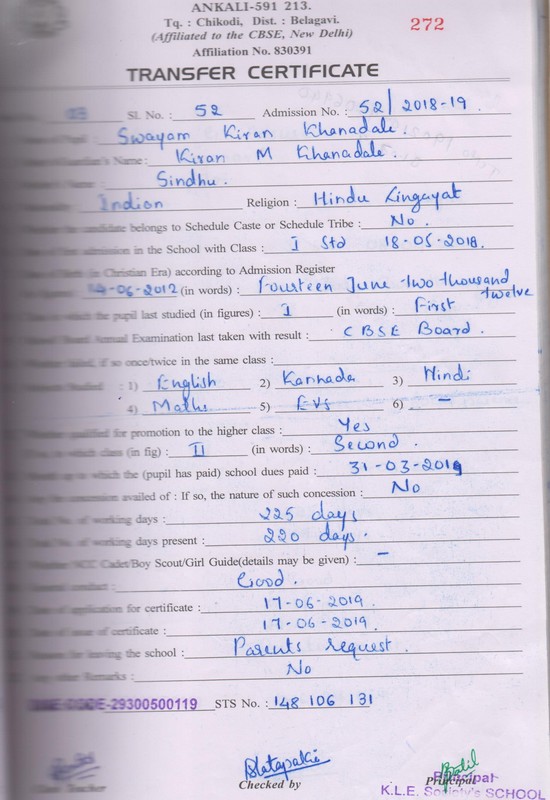 ANKALI-591 213.
Tq. : Chikodi, Dist. : Belagavi.
(Affiliated to the CBSE, New Delhi)
272
Affiliation No. 830391
TRANSFER CERTIFICATE
Sl. No. : 52 Admission No. : 52/2018-19.
Swayam Kiran Khanadale.
Name : Kiran M Khanadale.
Name : Sindhu.
Indian Religion : Hindu Lingayat
candidate belongs to Schedule Caste or Schedule Tribe : No.
admission in the School with Class : I Std 18-05-2018.
(in Christian Era) according to Admission Register
14-06-2012 (in words) : Fourteen June two thousand twelve
which the pupil last studied (in figures) : I (in words) : First
Board Annual Examination last taken with result : CBSE Board.
failed, if so once/twice in the same class :
Studied : 1) English 2) Kannada 3) Hindi
4) Maths 5) EVS 6) –
qualified for promotion to the higher class : Yes
class (in fig) : II (in words) : Second.
which the (pupil has paid) school dues paid : 31-03-2019
concession availed of : If so, the nature of such concession : No
of working days : 225 days
of working days present : 220 days.
NCC Cadet/Boy Scout/Girl Guide(details may be given) : –
conduct : Good.
application for certificate : 17-06-2019.
of certificate : 17-06-2019.
for leaving the school : Parents request.
other Remarks : No
CODE-29300500119 STS No. : 148 106 131
Teacher Checked by Principal
Principal
K.L.E. Society's SCHOOL